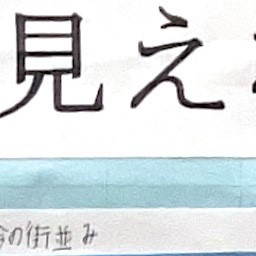 見え
の街並み